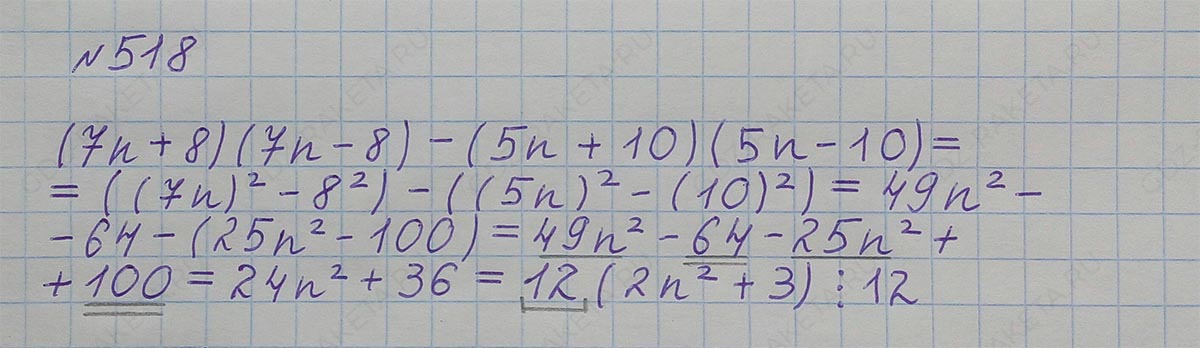 №518
(7n + 8)(7n - 8) - (5n + 10)(5n - 10) =
= ((7n)² - 8²) - ((5n)² - (10)²) = 49n² -
- 64 - (25n² - 100) = 49n² - 64 - 25n² +
+ 100 = 24n² + 36 = 12(2n² + 3) ⋮ 12